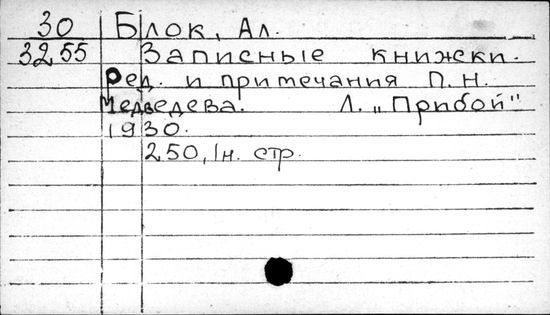 30 Блок, Ал.
3255 Записные книжски.
Ред. и примечания П.Н.
Медведева. Л. „Прибой"
1930.
250, 1н. стр.